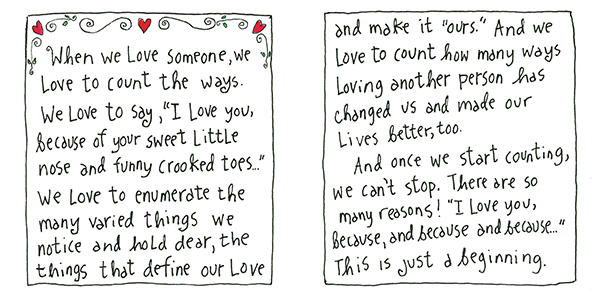 When we Love someone, we
Love to count the ways.
We Love to say, "I Love you,
because of your sweet Little
nose and funny crooked toes..."
We Love to enumerate the
many varied things we
notice and hold dear, the
things that define our Love
and make it "ours." And we
Love to count how many ways
Loving another person has
changed us and made our
Lives better, too.
And once we start counting,
we can't stop. There are so
many reasons! "I Love you,
Because, and because and because..."
This is just a beginning.